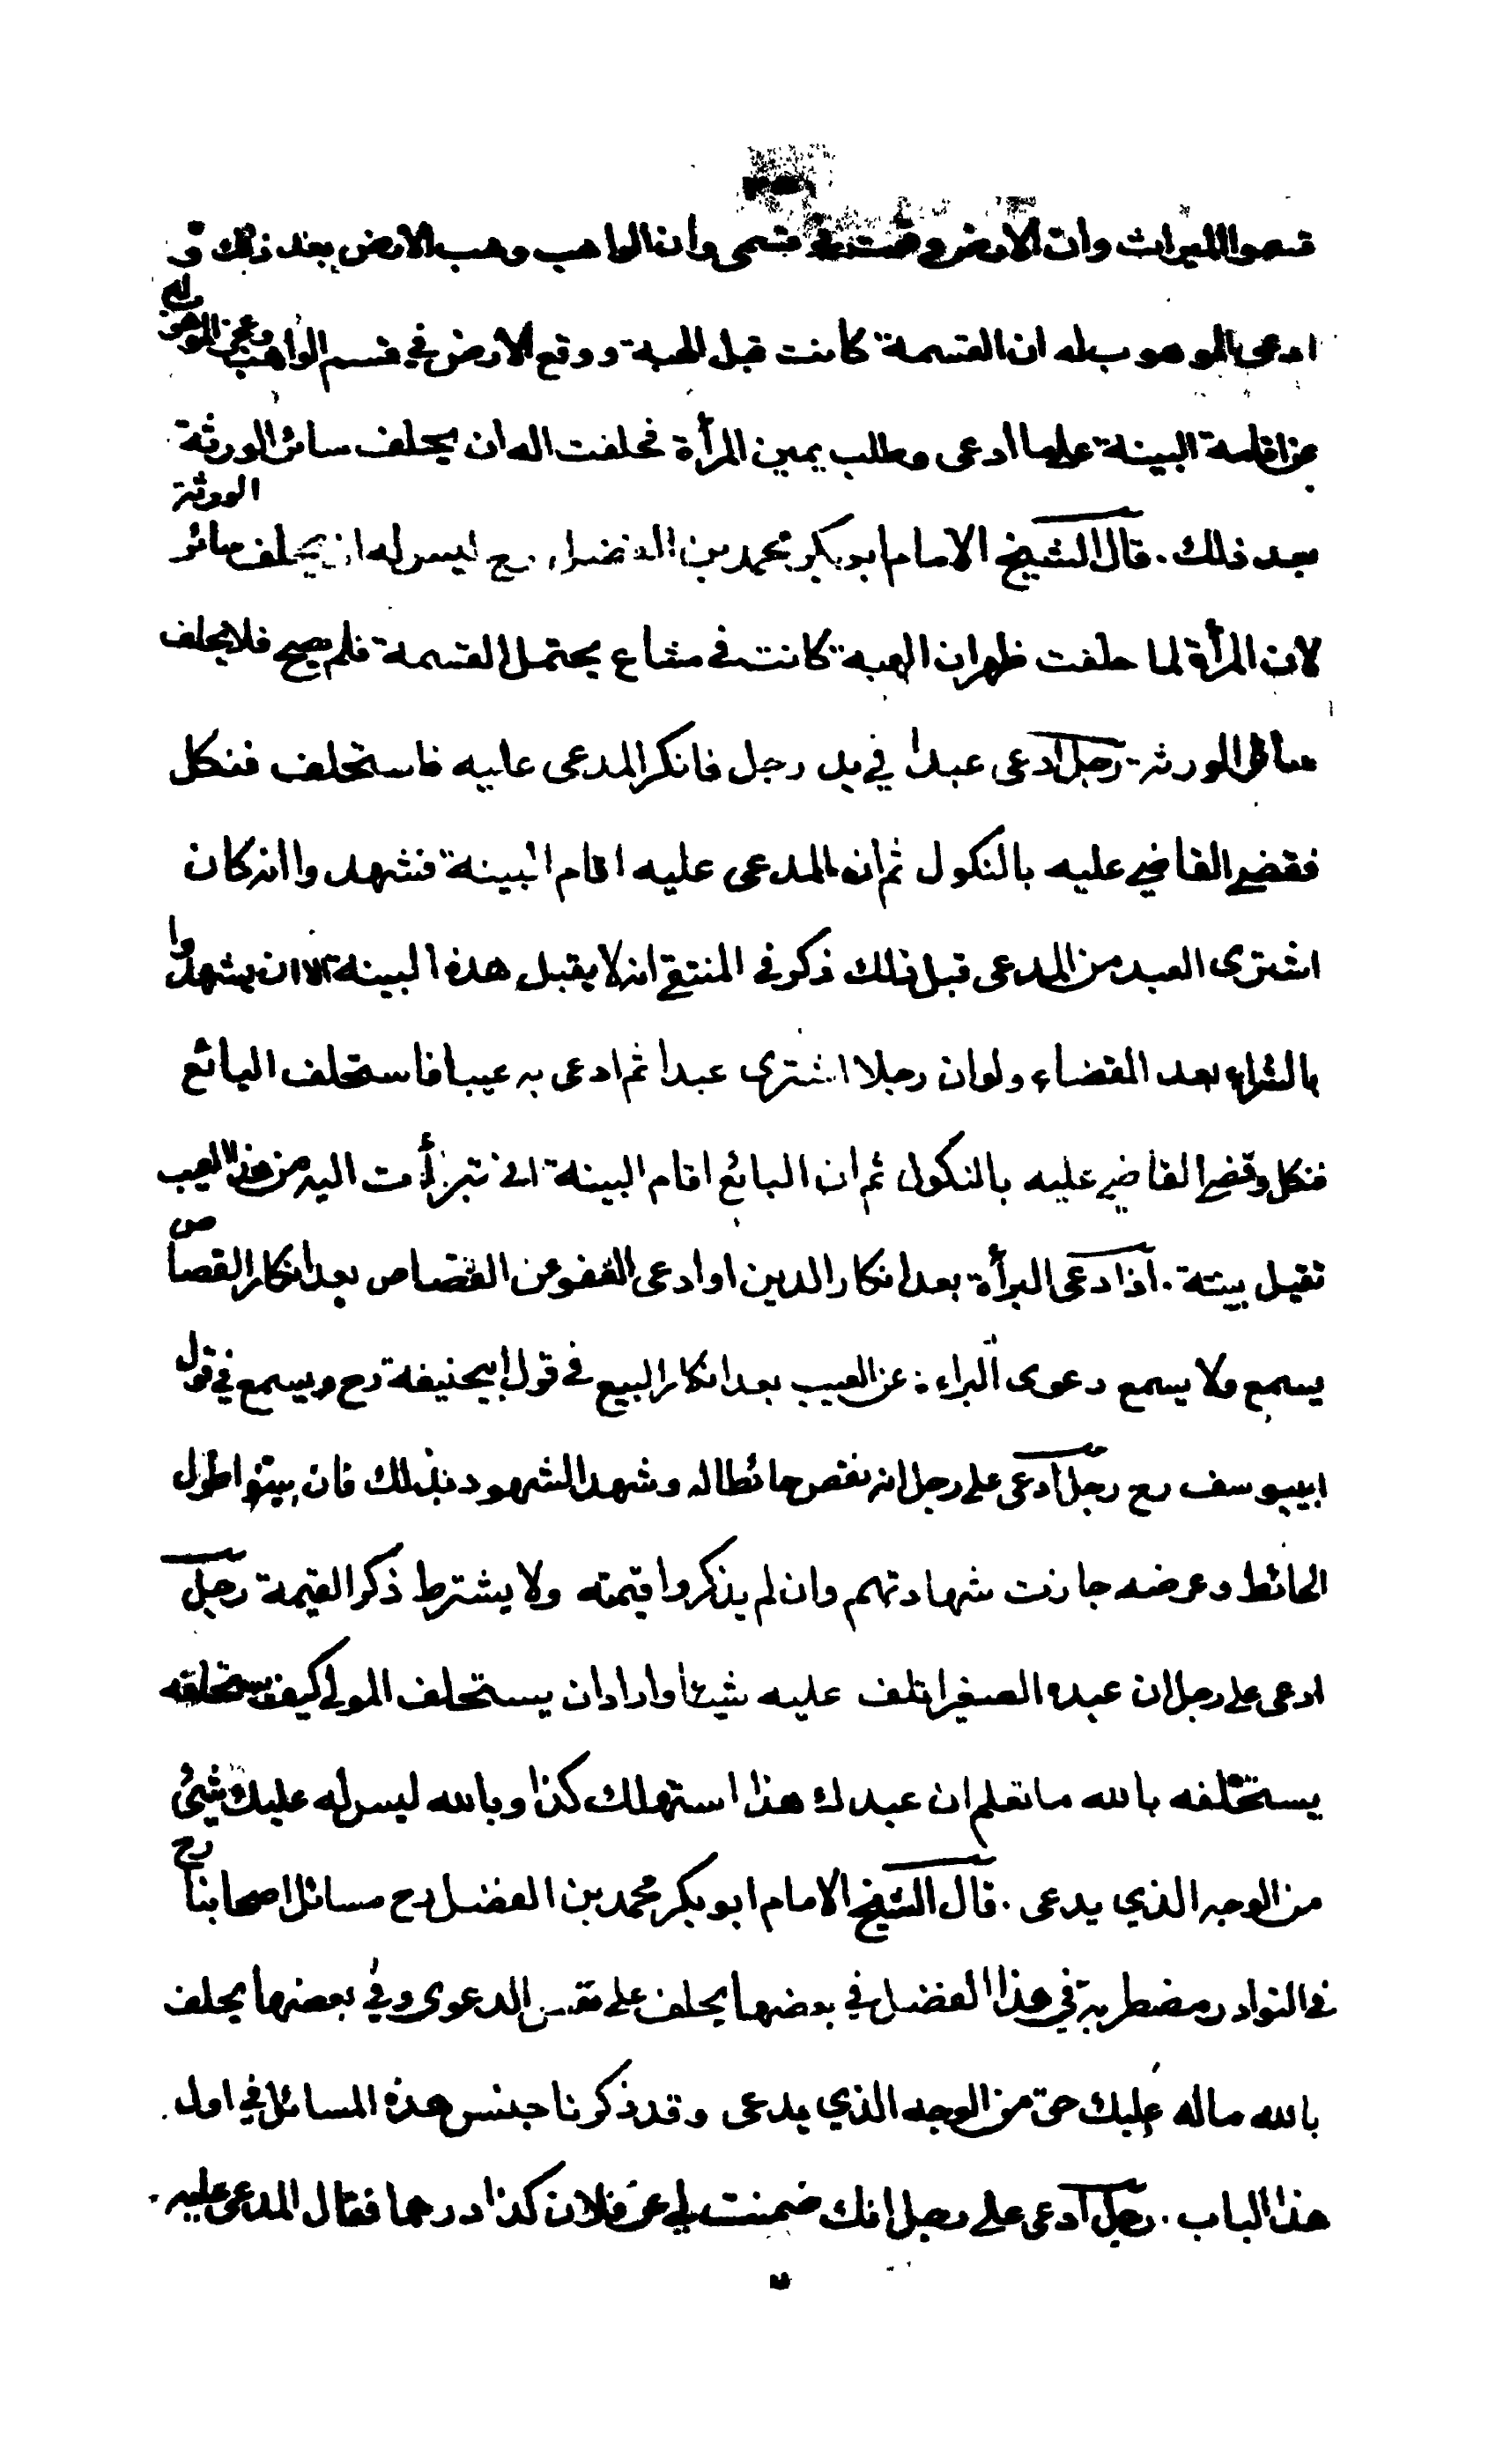 قسموا الميراث وان الارض وقعت في قسمى وان الواهب وهب الارض بعد ذلك و
ادعى الموهوب له ان القسمة كانت قبل الهبة ووقع الارض في قسم الواهب وعجز الموهوب له
عن اقامة البينة على ما ادعى وطلب يمين المرأة فحلفت اله ان يحلف سائر الورثة
بعد ذلك . قال الشيخ الامام ابو بكر محمد بن الفضل رح ليس له ان يحلف سائر الورثة
لان المرأة لما حلفت ظهر ان الهبة كانت في مشاع يحتمل القسمة فلم يصح فلا يحلف
سائر الورثة رجل ادعى عبدا في يد رجل فانكر المدعى عليه فاستحلف فنكل
فقضى القاضي عليه بالنكول ثم ان المدعى عليه اقام البينة فشهدوا انه كان
اشترى العبد من المدعى قبل ذلك ذكر في المنتقى انه لا يقبل هذه البينة الا ان يشهدوا
بالشراء بعد القضاء ولو ان رجلا اشترى عبدا ثم ادعى به عيبا فاستحلف البائع
فنكل وقضى القاضي عليه بالنكول ثم ان البائع اقام البينة اني تبرأت اليه من هذا العيب
تقبل بينته . اذا ادعى البرأة بعد انكار الدين او ادعى العفو عن القصاص بعد انكار القصاص
يسمع ولا يسمع دعوى البراءة عن العيب بعد انكار البيع في قول ابيحنيفة رح ويسمع في قول
ابييوسف رح رجل ادعى على رجل انه نقض حائطا له وشهد الشهود بذلك فان بينوا طول
الحائط وعرضه جازت شهادتهم وان لم يذكروا قيمته ولا يشترط ذكر القيمة رجل
ادعى على رجل ان عبده الصغير اتلف عليه شيئا واراد ان يستحلف المولى كيف يستحلفه
يستحلفه بالله ما تعلم ان عبدك هذا استهلك كذا وبالله ليس له عليك شيئ
من الوجه الذي يدعى . قال الشيخ الامام ابو بكر محمد بن الفضل رح مسائل اصحابنا رح
في النوادر مضطربة في هذا الفضل في بعضها يحلف على نفس الدعوى وفي بعضها يحلف
بالله ماله عليك حق من الوجه الذي يدعى وقد ذكرنا جنس هذه المسائل في اول
هذا الباب . رجل ادعى على رجل انك ضمنت لي عن فلان كذا درهما فقال المدعى عليه